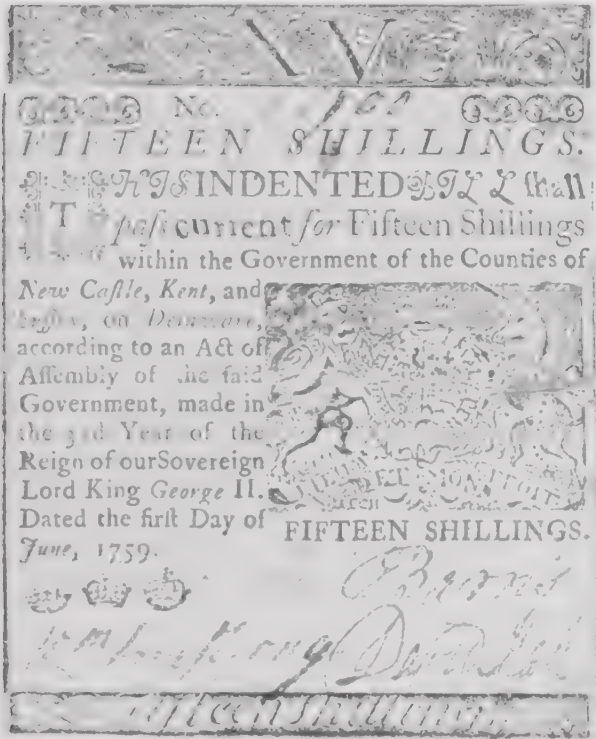 No.
FIFTEEN SHILLINGS.
THIS INDENTED BILL ſhall
paſs current for Fifteen Shillings
within the Government of the Counties of
New Caſtle, Kent, and
on Delaware,
according to an Act of
Aſſembly of the ſaid
Government, made in
the Year of the
Reign of ourSovereign
Lord King George II.
Dated the firſt Day of
June, 1759.
FIFTEEN SHILLINGS.
Wm Armſtrong
Fifteen Shillings.